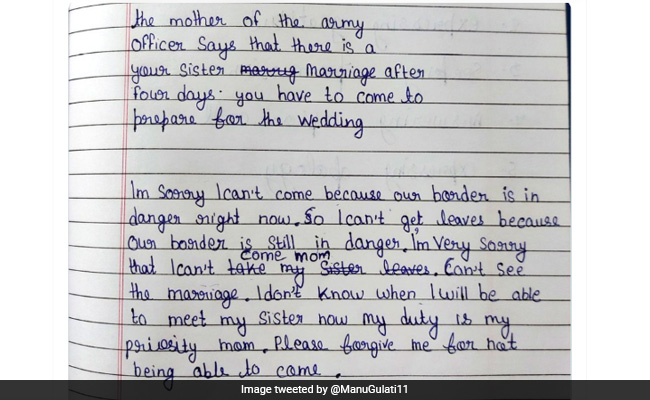 the mother of the army
officer says that there is a
your sister marrig Marriage after
four days. you have to come to
prepare for the wedding
Im sorry I can't come because our border is in
danger right now. So I can't get leaves because
our border is still in danger. I'm Very sorry
come mom
that I can't take my Sister leaves. Can't see
the marriage. I don't know when I will be able
to meet my sister now my duty is my
priority mom. Please forgive me for not
being able to come.
Image tweeted by @ManuGulati11